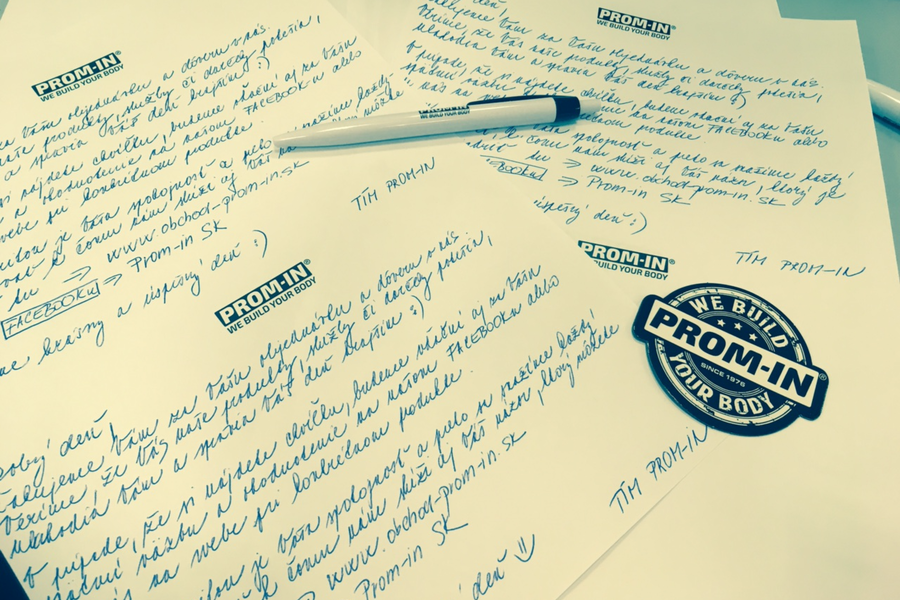 PROM-IN®
WE BUILD YOUR BODY
Vám za Vašu objednávku a dôveru v nás.
naše produkty, služby či darčeky potešia,
a spravia Váš deň krajším :)
si nájdete chvíľku, budeme vďační aj za Vašu
a ohodnotenie na našom FACEBOOKu alebo
webe pri konkrétnom produkte.
je Vaša spokojnosť a preto sa snažíme každý
k čomu nám slúži aj Váš
⇒ www.obchod-prom-in.sk
FACEBOOKu ⇒ Prom-in SK
krásny a úspešný deň :)
TÍM PROM-IN
PROM-IN®
WE BUILD YOUR BODY
Vám za Vašu objednávku a dôveru v nás.
Veríme, že Vás naše produkty, služby či darčeky potešia,
ulahodia Vám a spravia Váš deň krajším :)
V prípade, že si nájdete chvíľku, budeme vďační aj za Vašu
spätnú väzbu a ohodnotenie na našom FACEBOOKu alebo
konkrétnom produkte.
spokojnosť a preto sa snažíme každý
k čomu nám slúži aj Váš názor, ktorý je
⇒ www.obchod-prom-in.sk
⇒ Prom-in SK
úspešný deň :)
TÍM PROM-IN
PROM-IN®
WE BUILD YOUR BODY
Dobrý deň,
ďakujeme Vám za Vašu objednávku a dôveru v nás.
Veríme, že Vás naše produkty, služby či darčeky potešia,
ulahodia Vám a spravia Váš deň krajším :)
V prípade, že si nájdete chvíľku, budeme vďační aj za Vašu
spätnú väzbu a ohodnotenie na našom FACEBOOKu alebo
na webe pri konkrétnom produkte.
je Vaša spokojnosť a preto sa snažíme každý
k čomu nám slúži aj Váš názor, ktorý môžete
⇒ www.obchod-prom-in.sk
Prom-in SK
deň :)
TÍM PROM-IN
PROM-IN®
BUILD YOUR BODY
WE BUILD
PROM-IN®
SINCE 1976
YOUR BODY